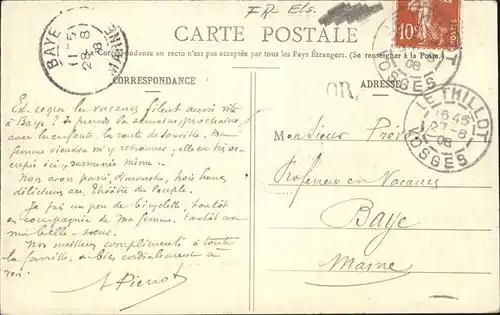 FR Els.
CARTE POSTALE
La Correspondance au recto n'est pas acceptée par tous les Pays Étrangers. (Se renseigner à la Poste.)
CORRESPONDANCE
ADRESSE
BAYE
11-51
28-8
08
MARNE
10c
08
VOSGES
OR
LE THILLOT
16 45
27-8
08
VOSGES
Est-ce que les vacances filent aussi vite
à Baye ? Je prends la semaine prochaine,
avec les enfants, la route de Ma
femme viendra m'y retrouver, elle en est oc-
cupée ici, même.
Nous avons passé, dimanche, trois heures
délicieuses au Théâtre du Peuple.
Je fais un peu de bicyclette tantôt
en compagnie de ma femme, tantôt avec
ma belle-sœur.
Nos meilleurs compliments à toute
la famille, et bien cordialement à
toi.
Pierrot
Monsieur
Professeur en Vacances
Baye
Marne